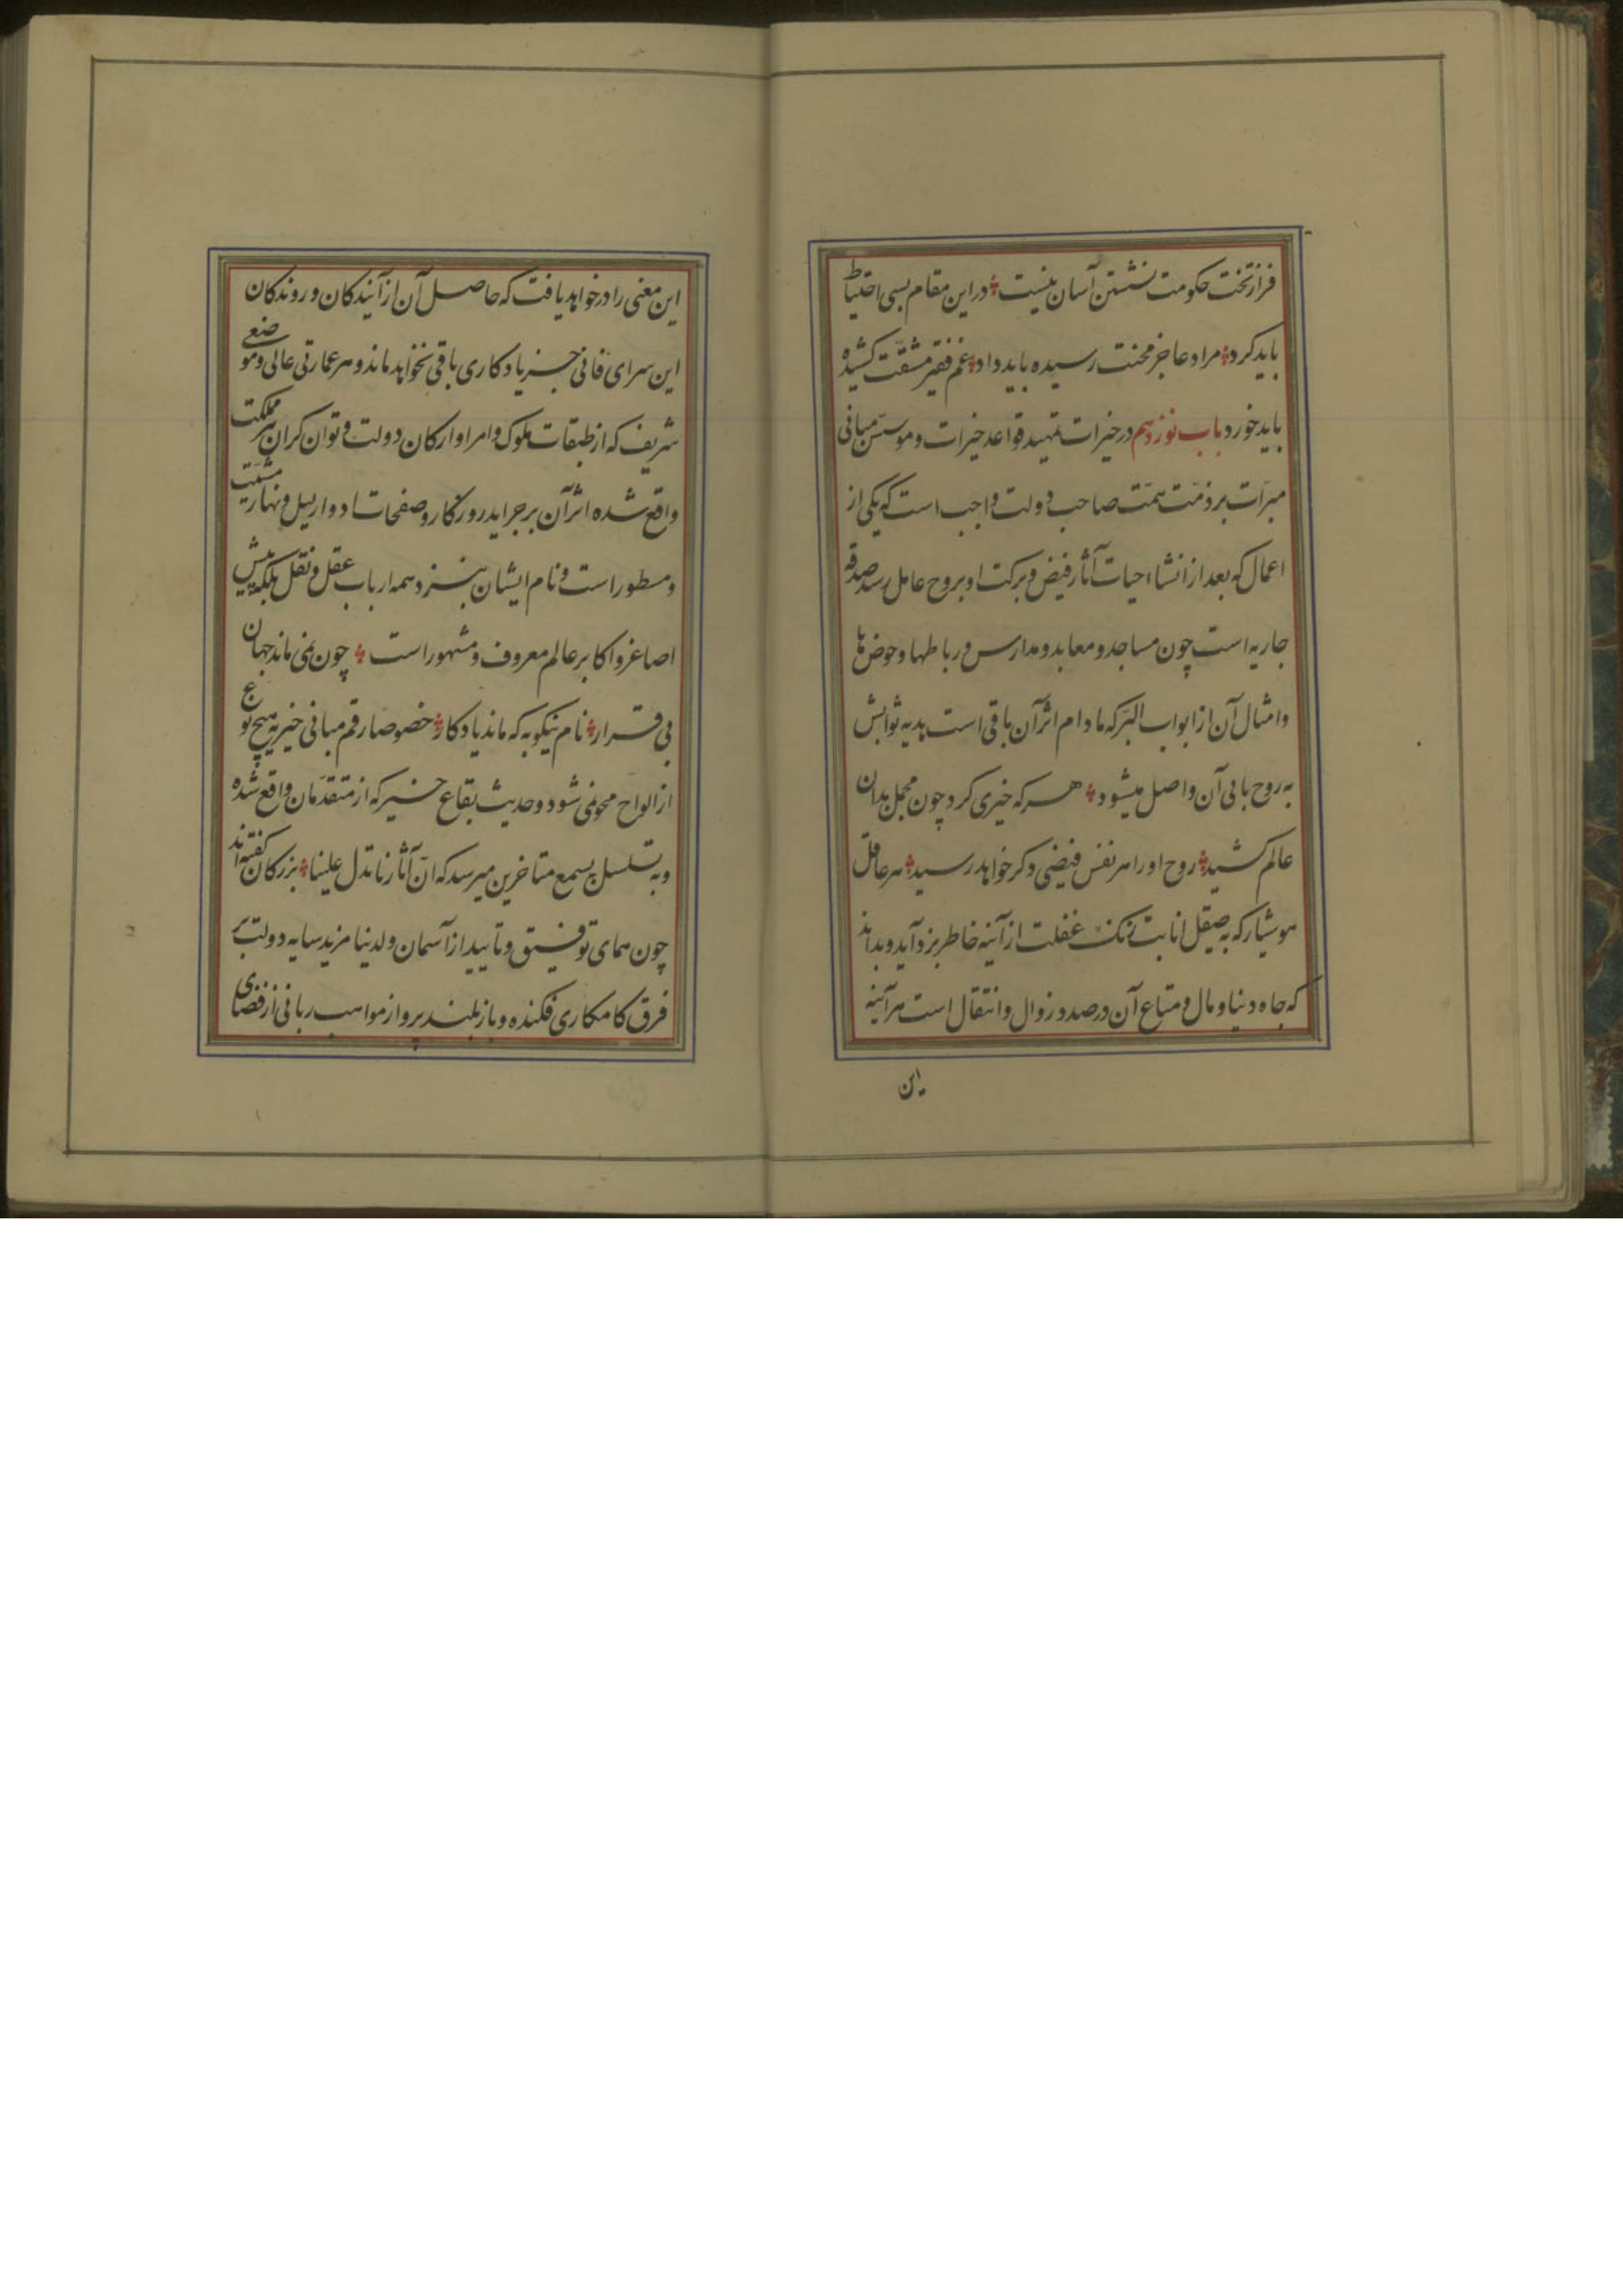 فراز تخت حکومت نشستن آسان نیست در این مقام بسی احتیاط
باید کرد مراد عاجز محنت رسیده باید داد غم فقیر مشقت کشیده
باید خورد باب نوزدهم در خیرات تمهید قواعد خیرات و موسس مبانی
مبرّات بر ذمّت همّت صاحب دولت واجب است که یکی از
اعمال که بعد از انشا احیات آثار فیض و برکت او بروح عامل رسد صدقه
جاریه است چون مساجد و معابد و مدارس و رباطها و حوض ها
و امثال آن از ابواب البرّ که مادام اثر آن باقی است هدیه ثوابش
به روح بانی آن واصل میشود هر که خیری کرد چون محمل بدان
عالم کشید روح او را هر نفس فیضی دکر خواهد رسید هر عاقل
هوشیار که به صیقل انابت زنک غفلت از آینه خاطر بزد آید و بداند
که جاه دنیا و مال و متاع آن در صدد زوال و انتقال است هر آینه
این
این معنی را در خواهد یافت که حاصل آن از آیندکان و روندکان
این سرای فانی جز یادکاری باقی نخواهد ماند و هر عمارتی عالی و موضعی
شریف که از طبقات ملوک و امرا و ارکان دولت و توان کران هر مملکت
واقع شده اثر آن بر جراید روزکار و صفحات ادوار لیل و نهار مثبت
و مسطور است و نام ایشان بنزد همه ارباب عقل و نقل بلکه پیش
اصاغر و اکابر عالم معروف و مشهور است چون نمی ماند جهان
بی قرار نام نیکو به که ماند یادکار خصوصا رقم مبانی خیر به هیچ نوع
از الواح محو نمی شود و حدیث بقاع خیر که از متقدّمان واقع شده
و به تسلسل بسمع متاخرین میرسد که انّ آثارنا تدل علینا بزرکان کفته اند
چون همای توفیق و تایید از آسمان ولدینا مزید سایه دولت بر
فرق کامکاری فکنده و باز بلند پرواز مواهب ربانی از فضای